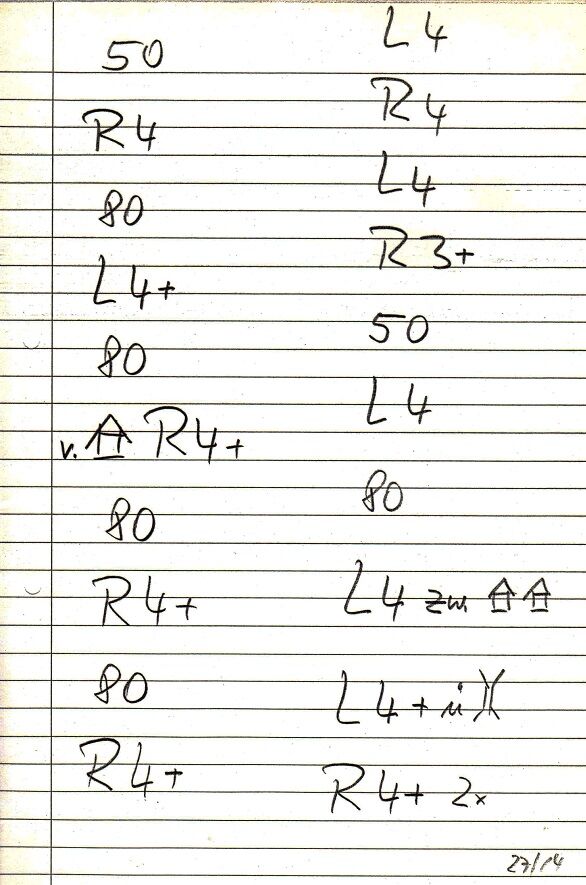 50
R4
80
L4+
80
v. R4+
80
R4+
80
R4+
L4
R4
L4
R3+
50
L4
80
L4 zw
L4+ ü
R4+ 2x
27/14